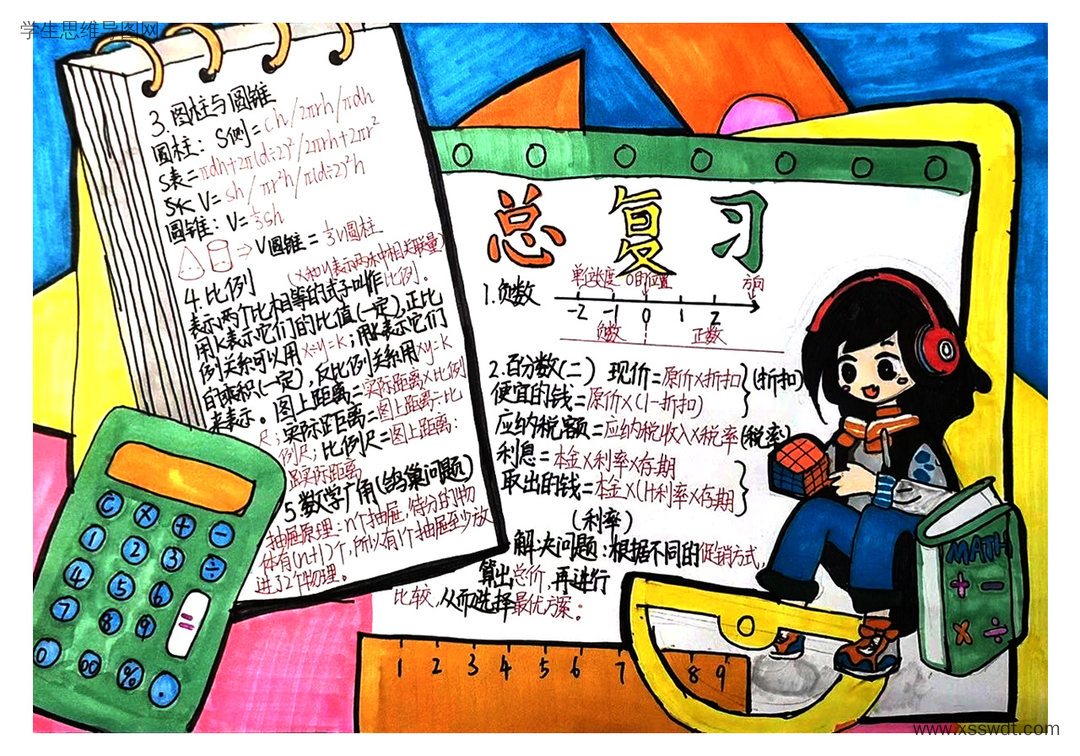 学生思维导图网
总复习
1.负数
单位长度 0的位置 方向
-2 -1 0 1 2
负数 正数
2.百分数(二) 现价=原价×折扣
便宜的钱=原价×(1-折扣) (折扣)
应纳税额=应纳税收入×税率(税率)
利息=本金×利率×存期
取出的钱=本金×(1+利率×存期)
(利率)
解决问题:根据不同的促销方式,
算出总价,再进行
比较,从而选择最优方案。
3.圆柱与圆锥
圆柱:S侧=ch/2πrh/πdh
S表=πdh+2π(d÷2)²/2πrh+2πr²
V=sh/πr²h/π(d÷2)²h
圆锥:V=⅓sh
⇒V圆锥=⅓V圆柱
4.比例 (x和y表示两种相关联量)
表示两个比相等的式子叫作比例。
用k表示它们的比值(一定),正比
例关系可以用x÷y=k;用k表示它们
的乘积(一定),反比例关系用xy=k
来表示。图上距离=实际距离×比例
尺;实际距离=图上距离÷比
例尺;比例尺=图上距离:
实际距离
5.数学广角(鸽巢问题)
抽屉原理:n个抽屉,待分的物
体有(n+1)个,所以有1个抽屉至少放
进了2个物理。
C × + -
1 2 3 ÷
4 5 6
7 8 9 =
0 00 % .
1 2 3 4 5 6 7 8 9
0
MATH
+ -
× ÷
www.xsswdt.com